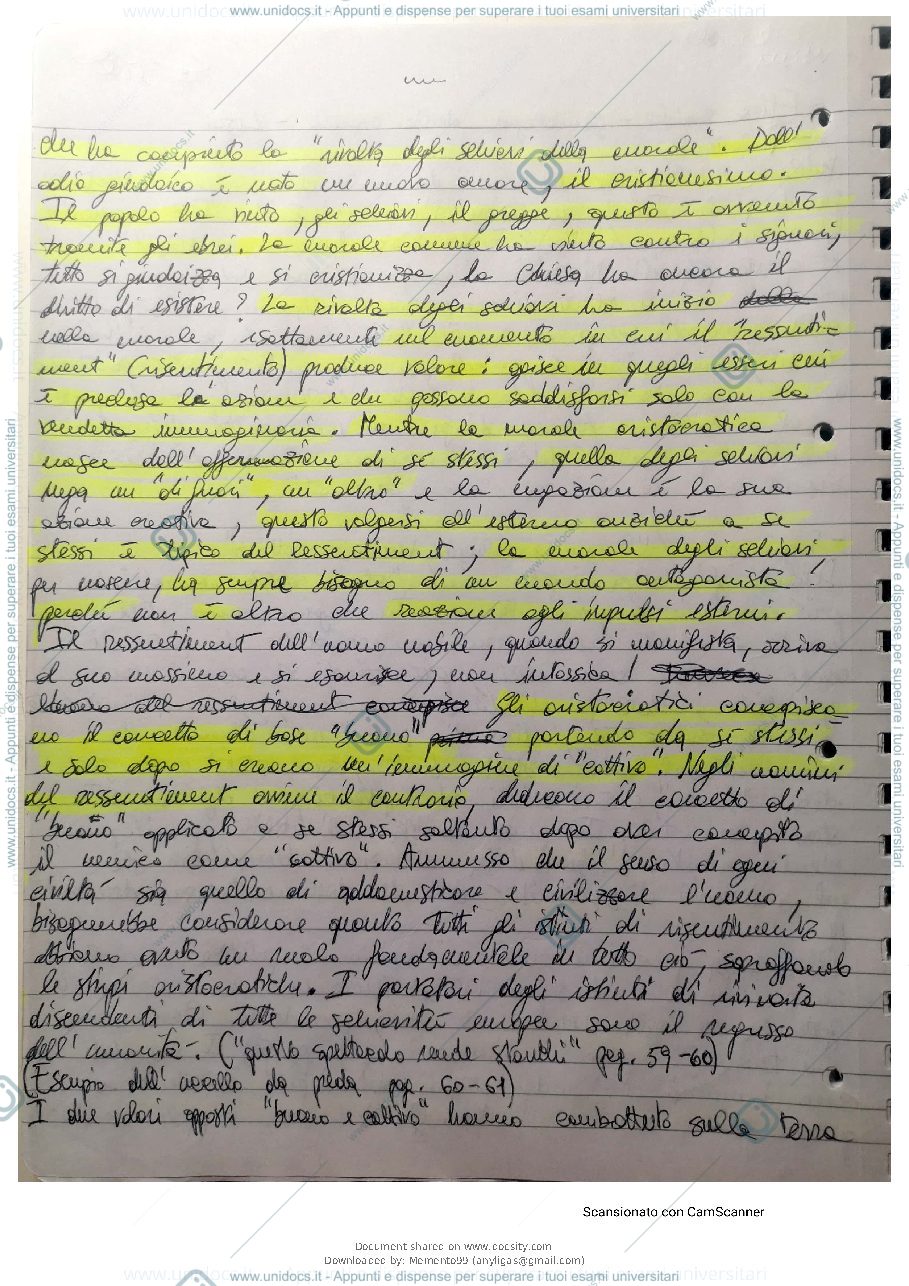 www.unidocs.it - Appunti e dispense per superare i tuoi esami universitari
che ha compiuto la "rivolta degli schiavi della morale". Dall'
odio giudaico è nato un nuovo amore, il cristianesimo.
Il popolo ha vinto, gli schiavi, il gregge, questo è avvenuto
tramite gli ebrei. La morale comune ha vinto contro i signori,
tutto si giudaizza e si cristianizza, la Chiesa ha ancora il
diritto di esistere? La rivolta degli schiavi ha inizio della
nella morale, esattamente nel momento in cui il "ressenti-
ment" (risentimento) produce valore: agisce in quegli esseri cui
è preclusa la azione e che possono soddisfarsi solo con la
vendetta immaginaria. Mentre la morale aristocratica
nasce dall'affermazione di sé stessi, quella degli schiavi
nega un "di fuori", un "altro" e la negazione è la sua
azione creativa, questo volgersi all'esterno anziché a se
stessi è tipico del Ressentiment; la morale degli schiavi
per nascere, ha sempre bisogno di un mondo antagonista!
perché non è altro che reazione agli impulsi esterni.
Il ressentiment dell'uomo nobile, quando si manifesta, arriva
al suo massimo e si esaurisce, non intossica!
del ressentiment concepisce Gli aristocratici concepisco-
no il concetto di base "buono" prima partendo da sé stessi
e solo dopo si creano un'immagine di "cattivo". Negli uomini
del ressentiment avviene il contrario, deducono il concetto di
"buono" applicato a se stessi soltanto dopo aver concepito
il nemico come "cattivo". Ammesso che il senso di ogni
civiltà sia quello di addomesticare e civilizzare l'uomo,
bisognerebbe considerare quanto tutti gli istinti di risentimento
abbiano avuto un ruolo fondamentale in tutto ciò, sopraffando
le stirpi aristocratiche. I portatori degli istinti di rivincita
discendenti di tutte le schiavitù europee sono il regresso
dell'umanità. ("questo spettacolo rende stanchi" pag. 59-60)
(Esempio dell'uccello da preda pag. 60-61)
I due valori opposti "buono e cattivo" hanno combattuto sulla terra
Scansionato con CamScanner
Document shared on www.docsity.com
Downloaded by: Memento99 (anyligas@gmail.com)
www.unidocs.it - Appunti e dispense per superare i tuoi esami universitari